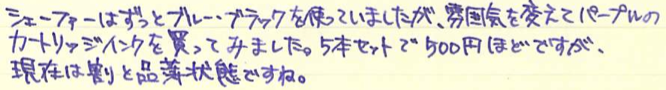 シェーファーはずっとブルー・ブラックを使っていましたが、雰囲気を変えてパープルの
カートリッジインクを買ってみました。5本セットで500円ほどですが、
現在は割と品薄状態ですね。